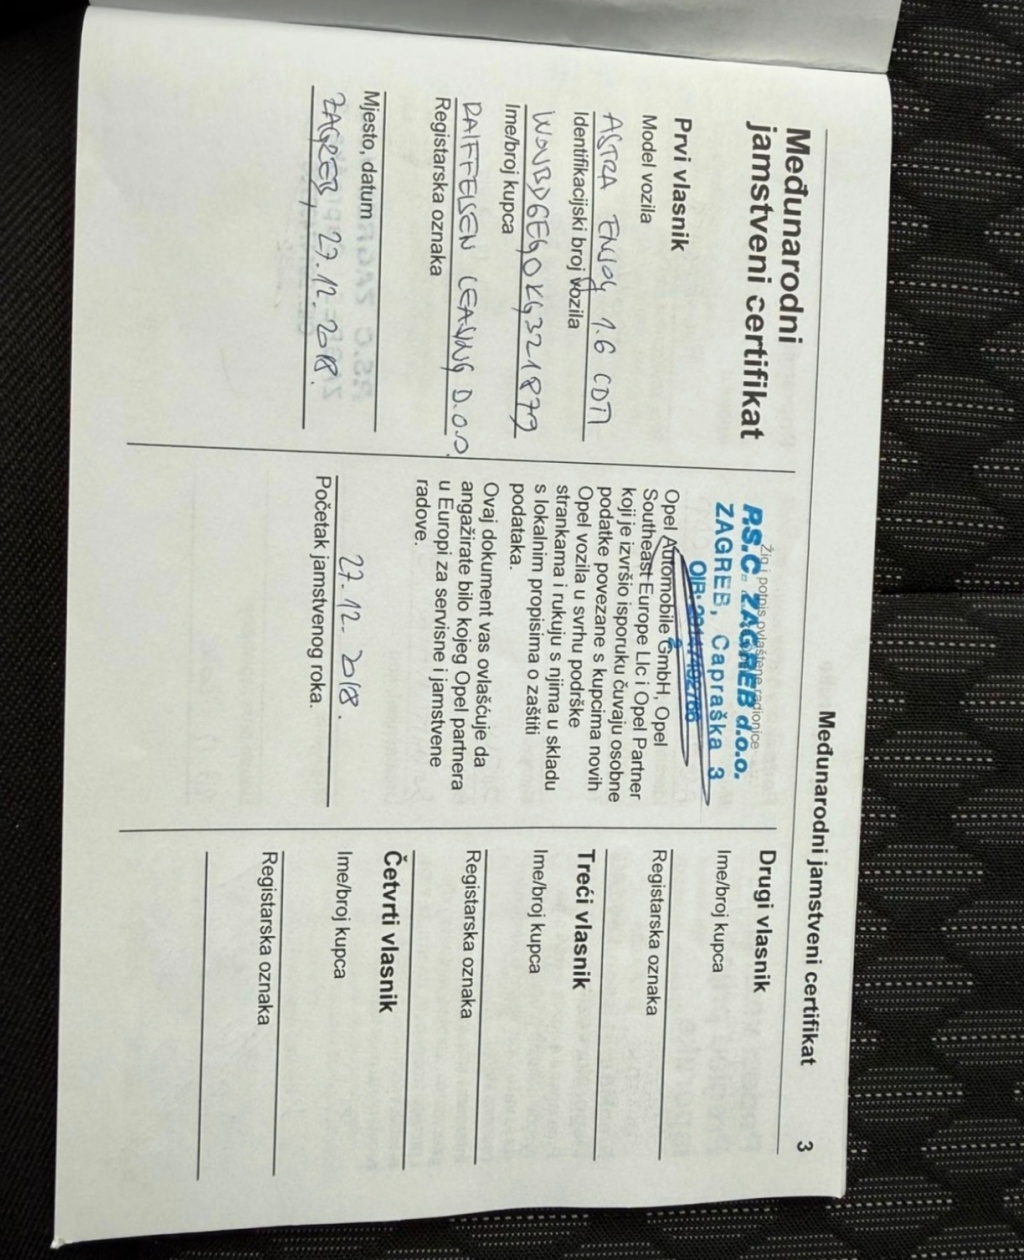 Međunarodni jamstveni certifikat 3
Međunarodni
jamstveni certifikat
Prvi vlasnik
Model vozila
ASTRA ENJOY 1.6 CDTI
Identifikacijski broj vozila
W0VBD6EG0KG321879
Ime/broj kupca
RAIFFEISEN LEASING D.O.O.
Registarska oznaka
Mjesto, datum
ZAGREB, 27.12.2018.
Žig i potpis ovlaštene radionice
P.S.C. ZAGREB d.o.o.
ZAGREB, Capraška 3
OIB:
2
Opel Automobile GmbH, Opel
Southeast Europe Llc i Opel Partner
koji je izvršio isporuku čuvaju osobne
podatke povezane s kupcima novih
Opel vozila u svrhu podrške
strankama i rukuju s njima u skladu
s lokalnim propisima o zaštiti
podataka.
Ovaj dokument vas ovlašćuje da
angažirate bilo kojeg Opel partnera
u Europi za servisne i jamstvene
radove.
27.12.2018.
Početak jamstvenog roka.
Drugi vlasnik
Ime/broj kupca
Registarska oznaka
Treći vlasnik
Ime/broj kupca
Registarska oznaka
Četvrti vlasnik
Ime/broj kupca
Registarska oznaka